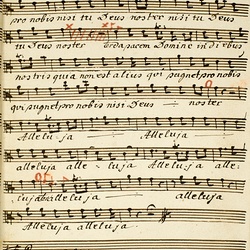 pro nobis nisi tu Deus noster nisi tu Deus
tu Deus noster Da pacem Domine in diebus
nostris quia non est alius qui pugnet pro nobis
qui pugnet pro nobis nisi Deus noster
Alleluja Alleluja
alleluja alle luja Alleluja alle
luja alleluja alleluja
Alleluja alleluja.